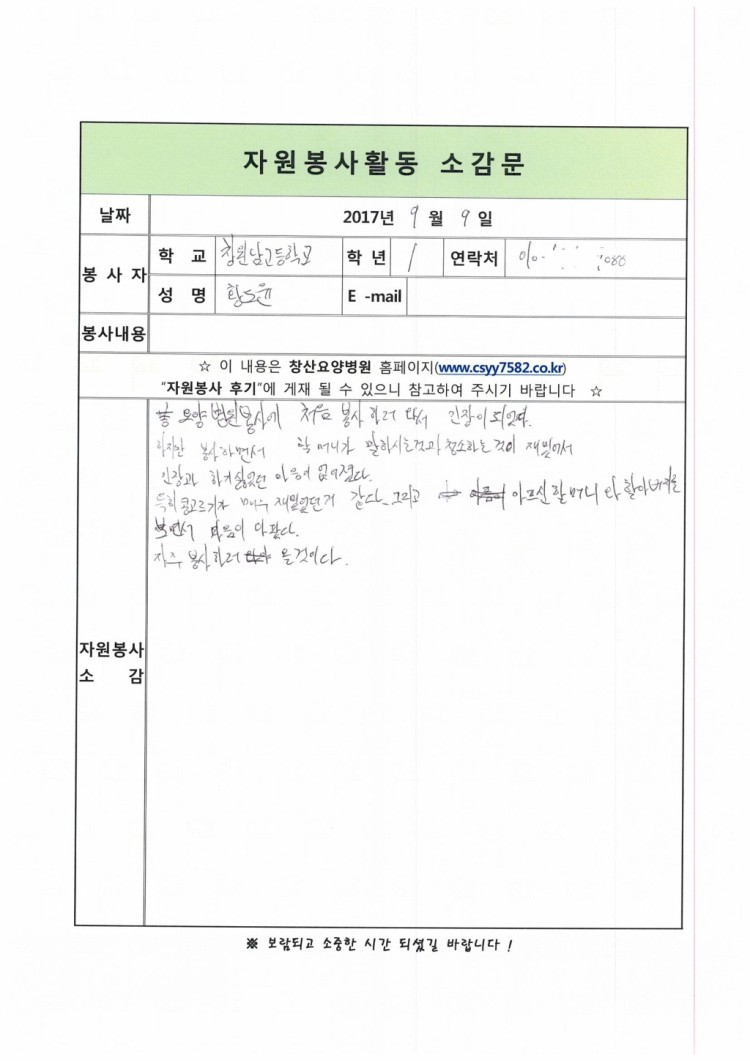 자원봉사활동 소감문
날짜 2017년 9 월 9 일
봉 사 자
학 교 창원남고등학교 학 년 1 연락처 010-
성 명 황도윤 E -mail
봉사내용
☆ 이 내용은 창산요양병원 홈페이지(www.csyy7582.co.kr)
"자원봉사 후기"에 게재 될 수 있으니 참고하여 주시기 바랍니다 ☆
요양병원봉사에 처음 봉사하러 와서 긴장이 되었다.
하지만 봉사하면서 할머니가 말하시는것과 청소하는것이 재밌어서
긴장과 하기싫었던 마음이 없어졌다.
특히 콩고르기가 매우 재밌었던거 같다. 그리고 아프신 할머니 와 할아버지를
보면서 마음이 아팠다.
자주 봉사하러 올것이다.
자원봉사
소 감
※ 보람되고 소중한 시간 되셨길 바랍니다 !